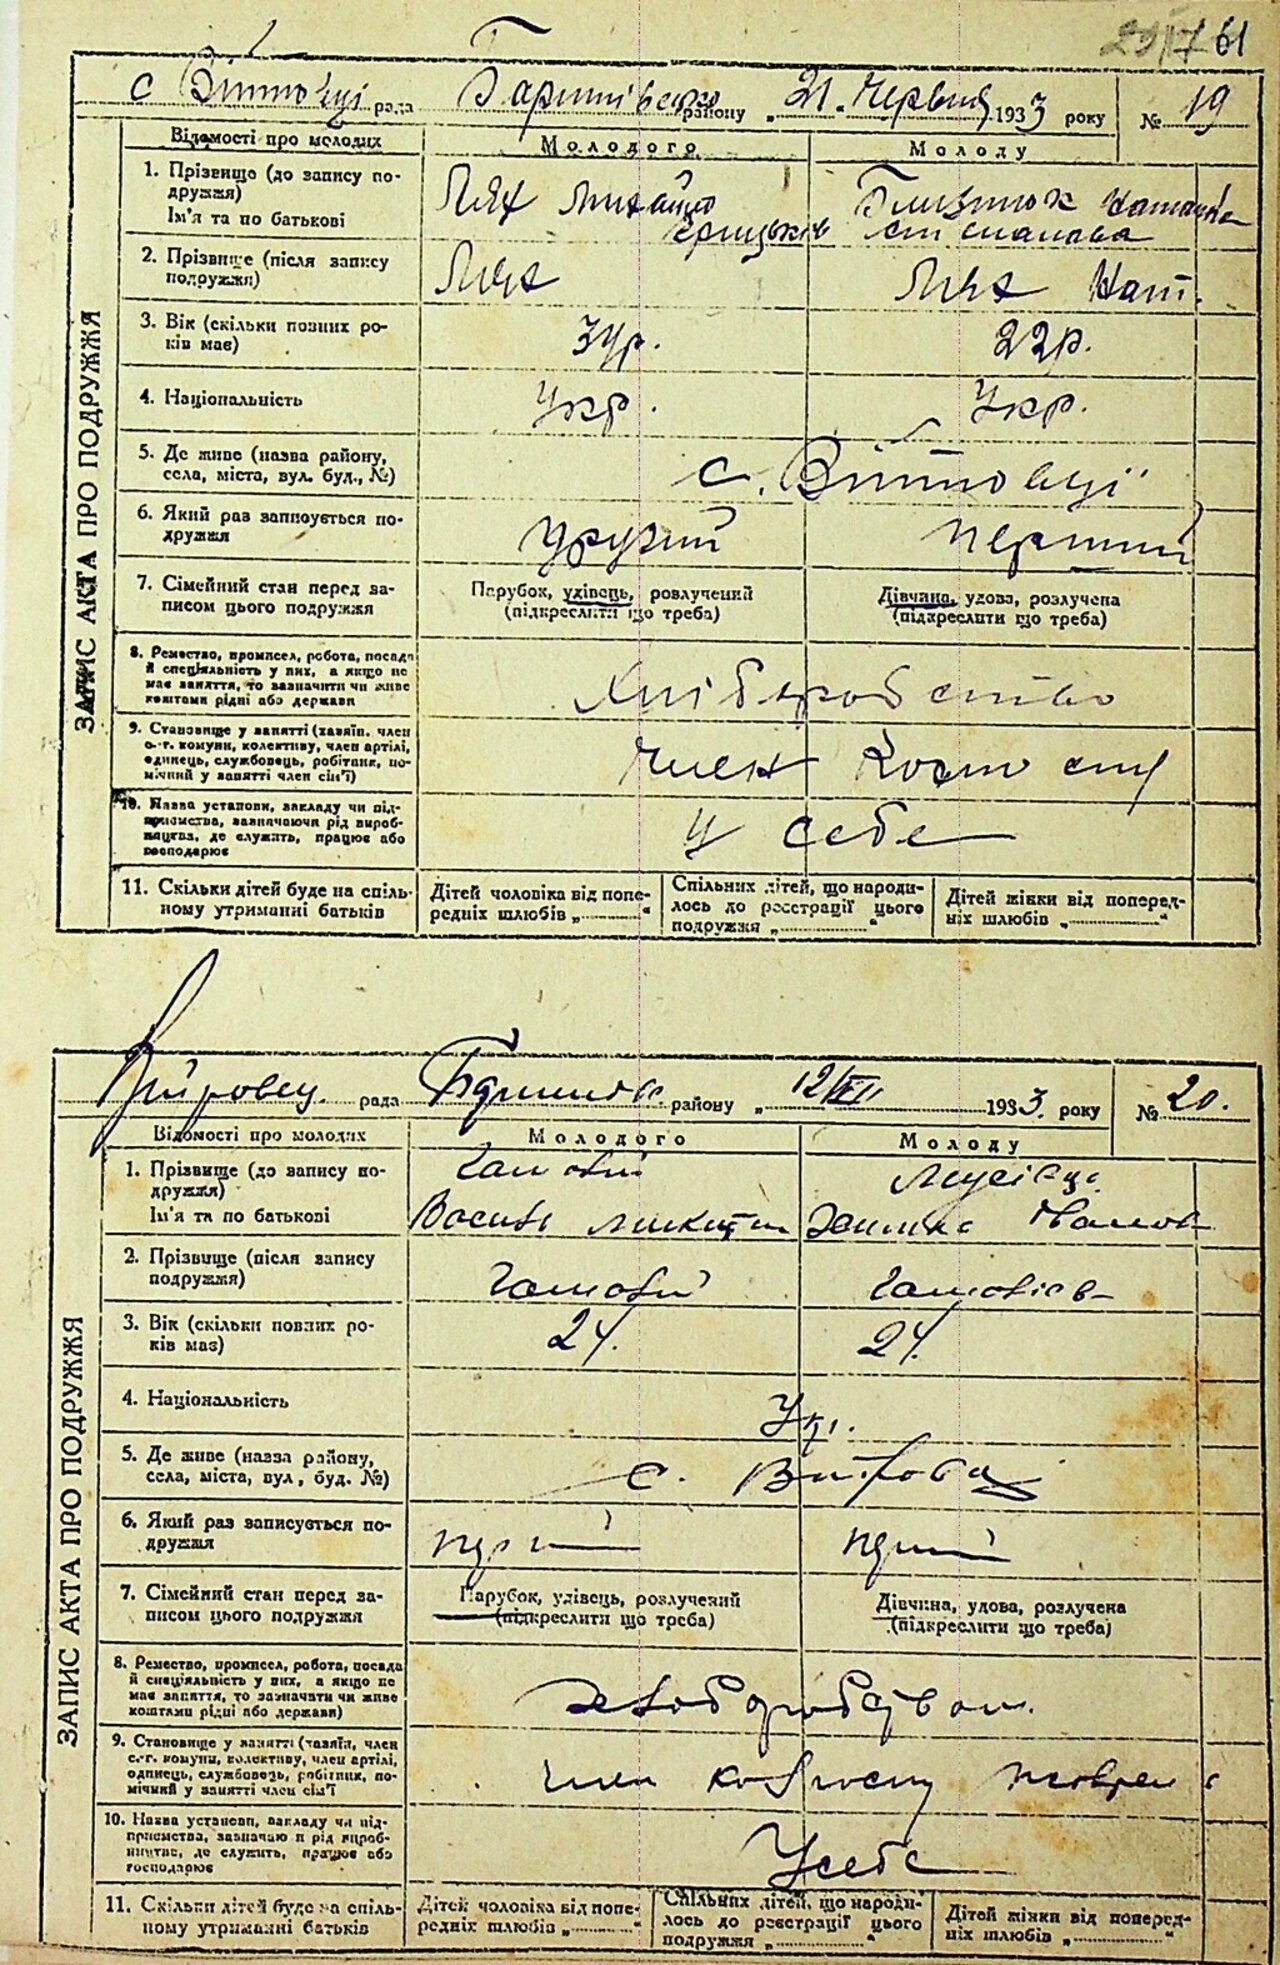 61
с Війтовці рада району „ 21. Червня 1933 року № 19
ЗАПИС АКТА ПРО ПОДРУЖЖЯ
Відомості про молодих Молодого Молоду
1. Прізвище (до запису по-
дружжя)
Ім'я та по батькові
Лях Михайло
Наталка
2. Прізвище (після запису
подружжя)
Лях Лях Нат.
3. Вік (скільки повних ро-
ків має)
34р. 22р.
4. Національність Укр. Укр.
5. Де живе (назва району,
села, міста, вул. буд., №)
с. Війтовці
6. Який раз записується по-
дружжя
другий перший
7. Сімейний стан перед за-
писом цього подружжя
Парубок, удівець, розлучений
(підкреслити що треба)
Дівчина, удова, розлучена
(підкреслити що треба)
8. Ремество, промисел, робота, посада
й спеціяльність у них, а якщо не
має заняття, то зазначити чи живе
коштами рідні або держави
Хліборобство
9. Становище у занятті (хазяїн, член
с.-г. комуни, колективу, член артілі,
одинець, службовець, робітник, по-
мічний у занятті член сім'ї)
член
10. Назва установи, закладу чи під-
приємства, зазначаючи рід вироб-
ництва, де служить, працює або
господарює
у себе
11. Скільки дітей буде на спіль-
ному утриманні батьків
Дітей чоловіка від попе-
редніх шлюбів „ “
Спільних дітей, що народи-
лось до реєстрації цього
подружжя „ “
Дітей жінки від поперед-
ніх шлюбів „ “
рада району „ 12/VII 1933. року № 20.
ЗАПИС АКТА ПРО ПОДРУЖЖЯ
Відомості про молодих Молодого Молоду
1. Прізвище (до запису по-
дружжя)
Ім'я та по батькові
Василь Микит Іванов
2. Прізвище (після запису
подружжя)
3. Вік (скільки повних ро-
ків має)
24. 24.
4. Національність Укр.
5. Де живе (назва району,
села, міста, вул, буд. №)
с.
6. Який раз записується по-
дружжя
7. Сімейний стан перед за-
писом цього подружжя
Парубок, удівець, розлучений
(підкреслити що треба)
Дівчина, удова, розлучена
(підкреслити що треба)
8. Ремество, промисел, робота, посада
й спеціяльність у них, а якщо не
має заняття, то зазначати чи живе
коштами рідні або держави)
9. Становище у занятті (хазяїн, член
с.-г. комуни, колективу, член артілі,
одинець, службовець, робітник, по-
мічний у занятті член сім'ї
член
10. Назва установи, закладу чи під-
приємства, зазначаючи рід вироб-
ництва, де служить, працює або
господарює
У себе
11. Скільки дітей буде на спіль-
ному утриманні батьків
Дітей чоловіка від попе-
редніх шлюбів „ “
Спільних дітей, що народи-
лось до реєстрації цього
подружжя „ “
Дітей жінки від поперед-
ніх шлюбів „ “